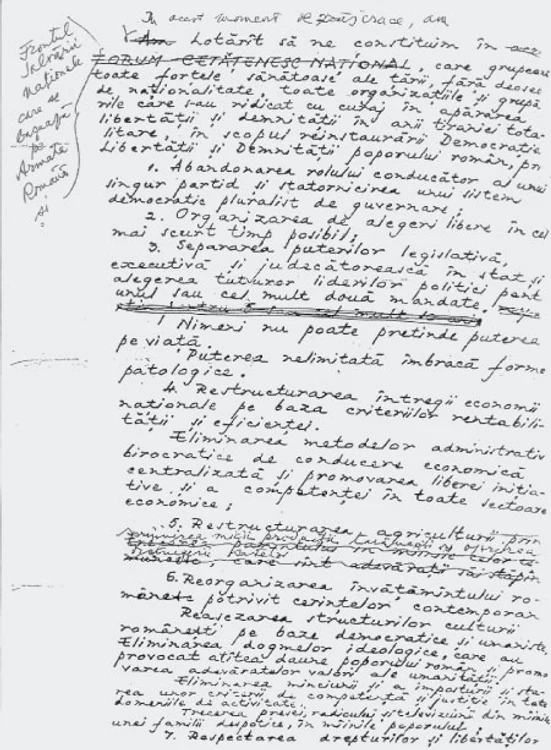 În acest moment de răscruce, am
Frontul
Salvării
Naționale
care se
bazează
pe
Armata
Română
și
Am hotărît să ne constituim în
FORUM CETĂȚENESC NAȚIONAL, care grupează
toate forțele sănătoase ale țării, fără deose
de naționalitate, toate organizațiile și grupă
rile care s-au ridicat cu curaj în apărarea
libertății și demnității în anii tiraniei tota
litare, în scopul reinstaurării Democrației
Libertății și Demnității poporului român, pri
1. Abandonarea rolului conducător al unui
singur partid și statornicirea unui sistem
democratic pluralist de guvernare;
2. Organizarea de alegeri libere în cel
mai scurt timp posibil;
3. Separarea puterilor legislativă,
executivă și judecătorească în stat și
alegerea tuturor liderilor politici pent
unul sau cel mult două mandate.
Nimeni nu poate pretinde puterea
pe viață.
Puterea nelimitată îmbracă forme
patologice.
4. Restructurarea întregii economii
naționale pe baza criteriilor rentabili-
tății și eficienței.
Eliminarea metodelor administrativ
birocratice de conducere economică
centralizată și promovarea liberei iniția-
tive și a competenței în toate sectoare
economice;
5. Restructurarea agriculturii prin
sprijinirea micii producții țărănești și oprirea
distrugerii satelor
, care sînt adevărații săi stăpîn
6. Reorganizarea învățămîntului ro-
mânesc potrivit cerințelor contemporan
Reașezarea structurilor culturii
românești pe baze democratice și umaniste.
Eliminarea dogmelor ideologice, care au
provocat atîtea daune poporului român și promo
varea adevăratelor valori ale umanității.
Eliminarea minciunii și a imposturii și sta-
rea unor criterii de competență și justiție în toate
domeniile de activitate.
Trecerea presei, radioului și televiziunii din mîinile
unei familii despotice, în mîinile poporului
7. Respectarea drepturilor și libertăților